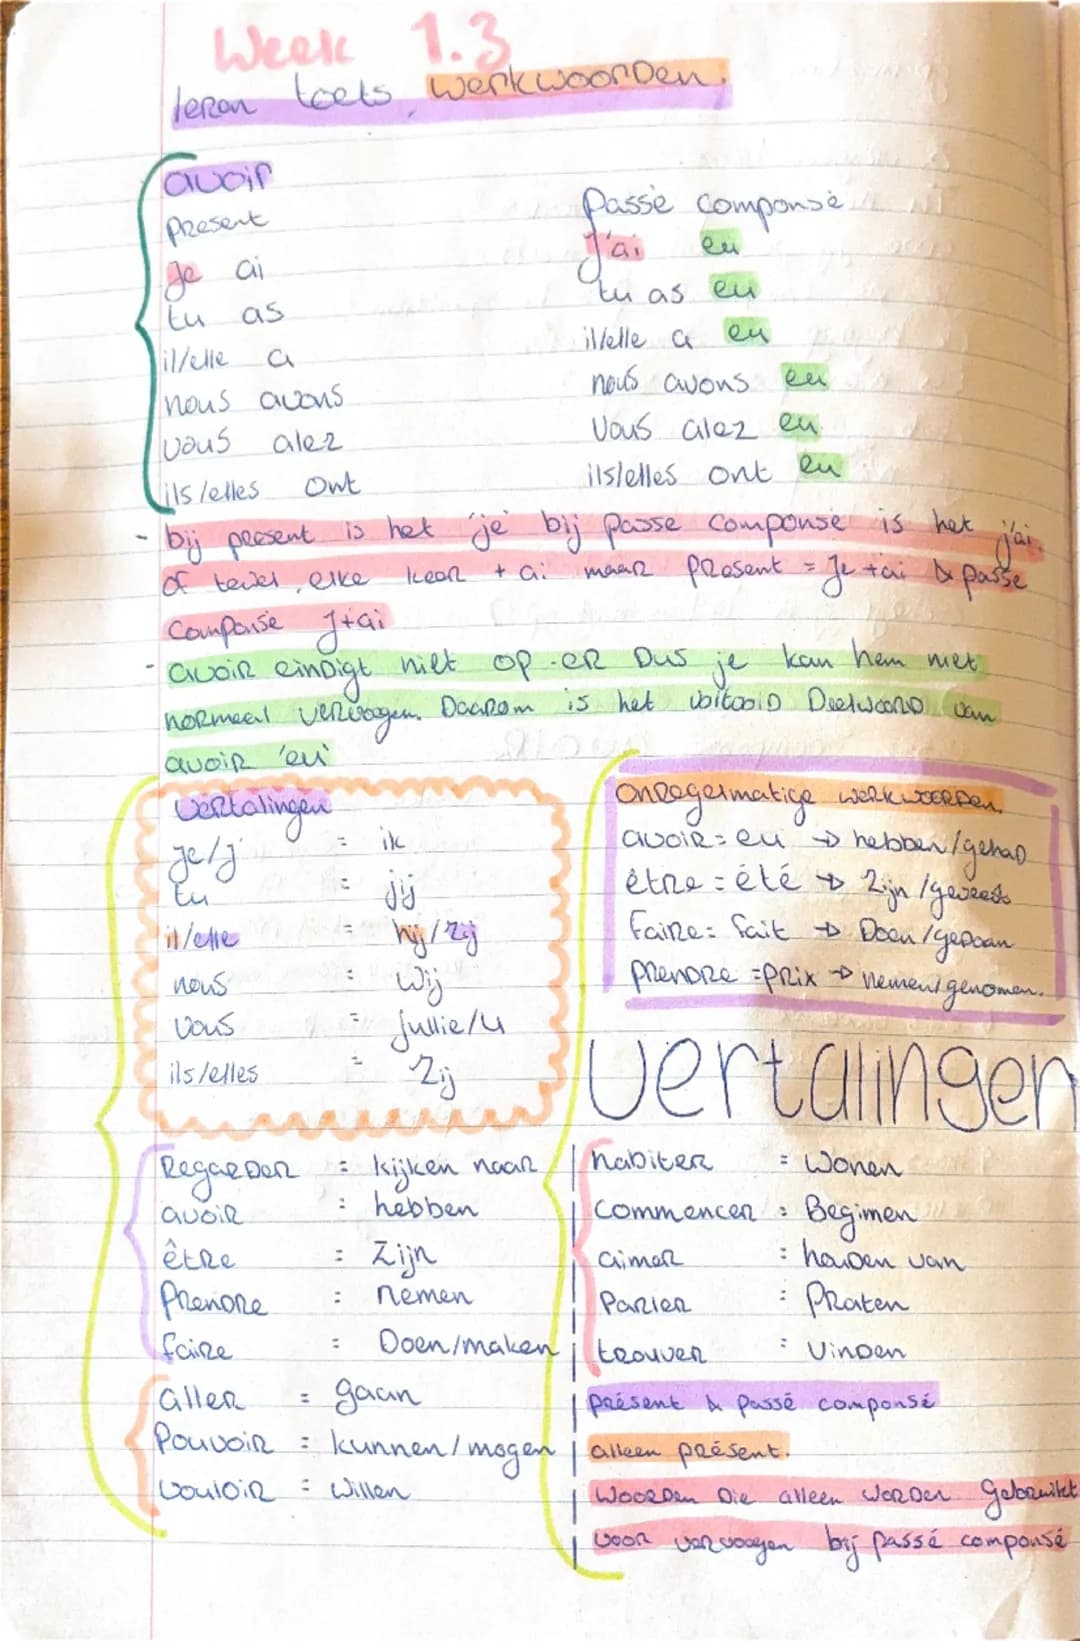 Week 1.3
leren toets, werkwoorden.
avoir
present
je ai
tu as
il/elle a
nous avons
vous alez
ils/elles ont
Passé componsé
J'ai eu
tu as eu
il/elle a eu
nous avons eu
Vous alez eu
ils/elles ont eu
- bij present is het 'je' bij passe componsé is het j'ai.
of tewel, elke keer + ai maar present = Je + ai & passe
componsé J+ai
- avoir eindigt niet op -er Dus je kan hem niet
normaal vervoegen. Daarom is het voltooid Deelwoord van
avoir 'eu'
vertalingen
je/j' = ik
tu = jij
il/elle = hij/zij
nous = wij
vous = jullie/u
ils/elles = zij
onregelmatige werkwoorden.
avoir = eu → hebben/gehad
être = été → zijn/geweest
Faire = fait → Doen/gedaan
prendre = prix → nemen/genomen.
vertalingen
Regarder = kijken naar
avoir = hebben
être = Zijn
Prendre = nemen
faire = Doen/maken
aller = gaan
Pouvoir = kunnen/mogen
vouloir = willen
habiter = wonen
commencer = Beginnen
aimer = houden van
Parler = Praten
trouver = Vinden
présent & passé componsé
alleen présent.
woorden Die alleen worden gebruikt
voor vervoegen bij passé componsé